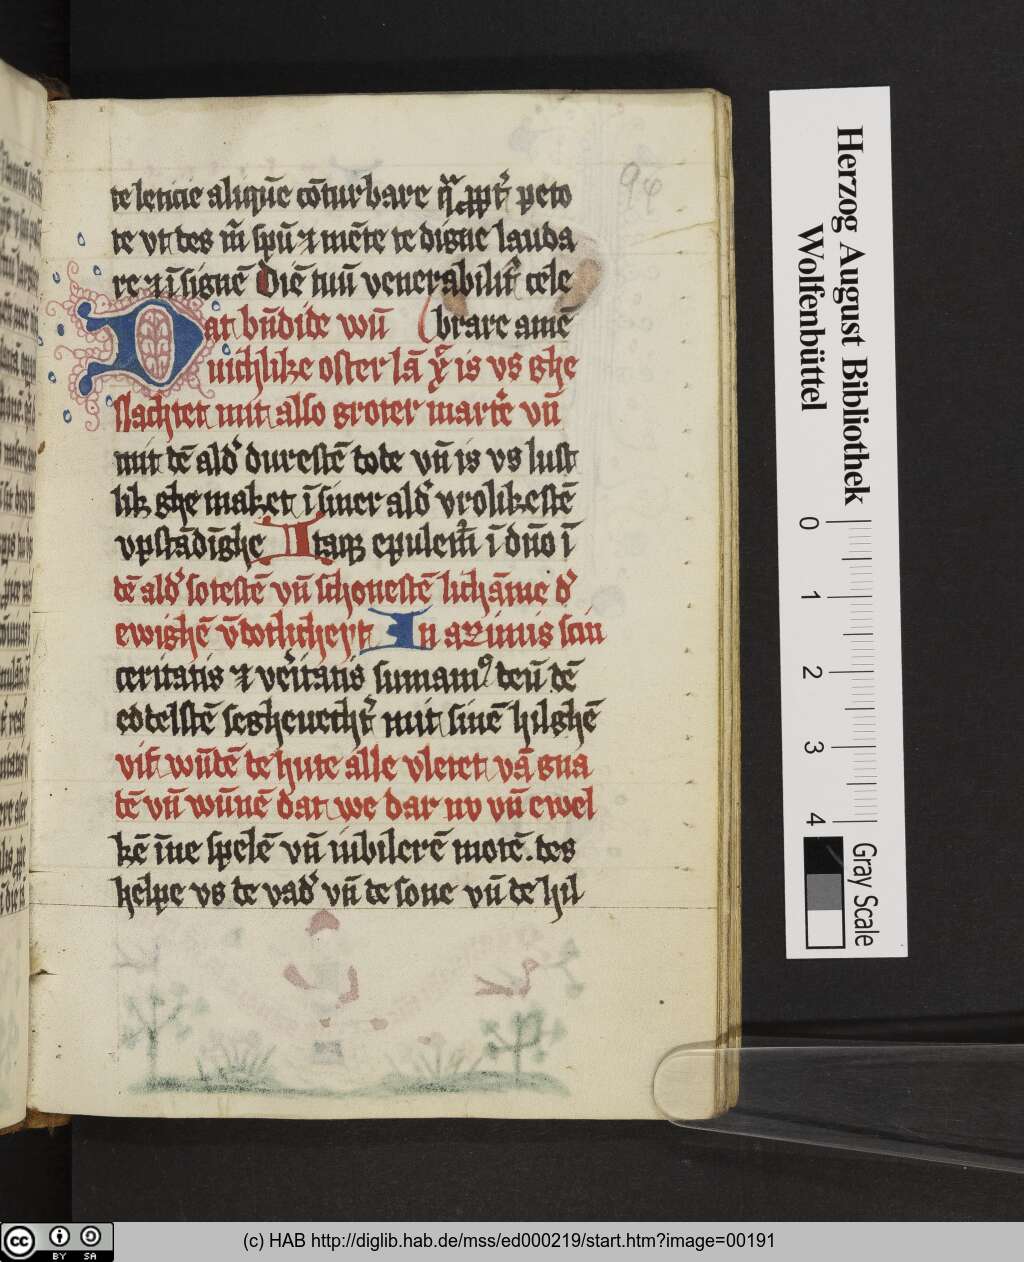 te leticie aliquē cōturbare q̄ ꝓpt᷑ peto
te vt des m̄ spū ⁊ mēte te digne lauda
re ⁊ īsignē Diē tuū venerabilit᷑ cele
Dat bn̄dide wū brare amē
nichlike oster lā xp̄ is vs ghe
slachtet mit also groter mart᷑e vn̄
mit dē ald᷑ durestē dode vn̄ is vs lust
lik ghe maket ī siner ald᷑ vrolikestē
vpstādīghe Itaqꝫ epulem᷑ ī dn̄o ī
dē ald᷑ sotestē vn̄ schonestē lichāme d᷑
ewighē v̄dotlicheyt In azimis scin
ceritatis ⁊ v᷑eritatis sumamꝰ deū dē
eddelstē segheuecht᷑ mit sinē hilghē
vif wūdē de hute alle vletet vā gna
dē vn̄ wūnē dat we dar nv vn̄ ewel
kē īne spelē vn̄ iubilerē motē. des
helpe vs de vad᷑ vn̄ de sone vn̄ de hil
94
Herzog August Bibliothek
Wolfenbüttel
0 1 2 3 4
Gray Scale
cc BY SA
(c) HAB http://diglib.hab.de/mss/ed000219/start.htm?image=00191